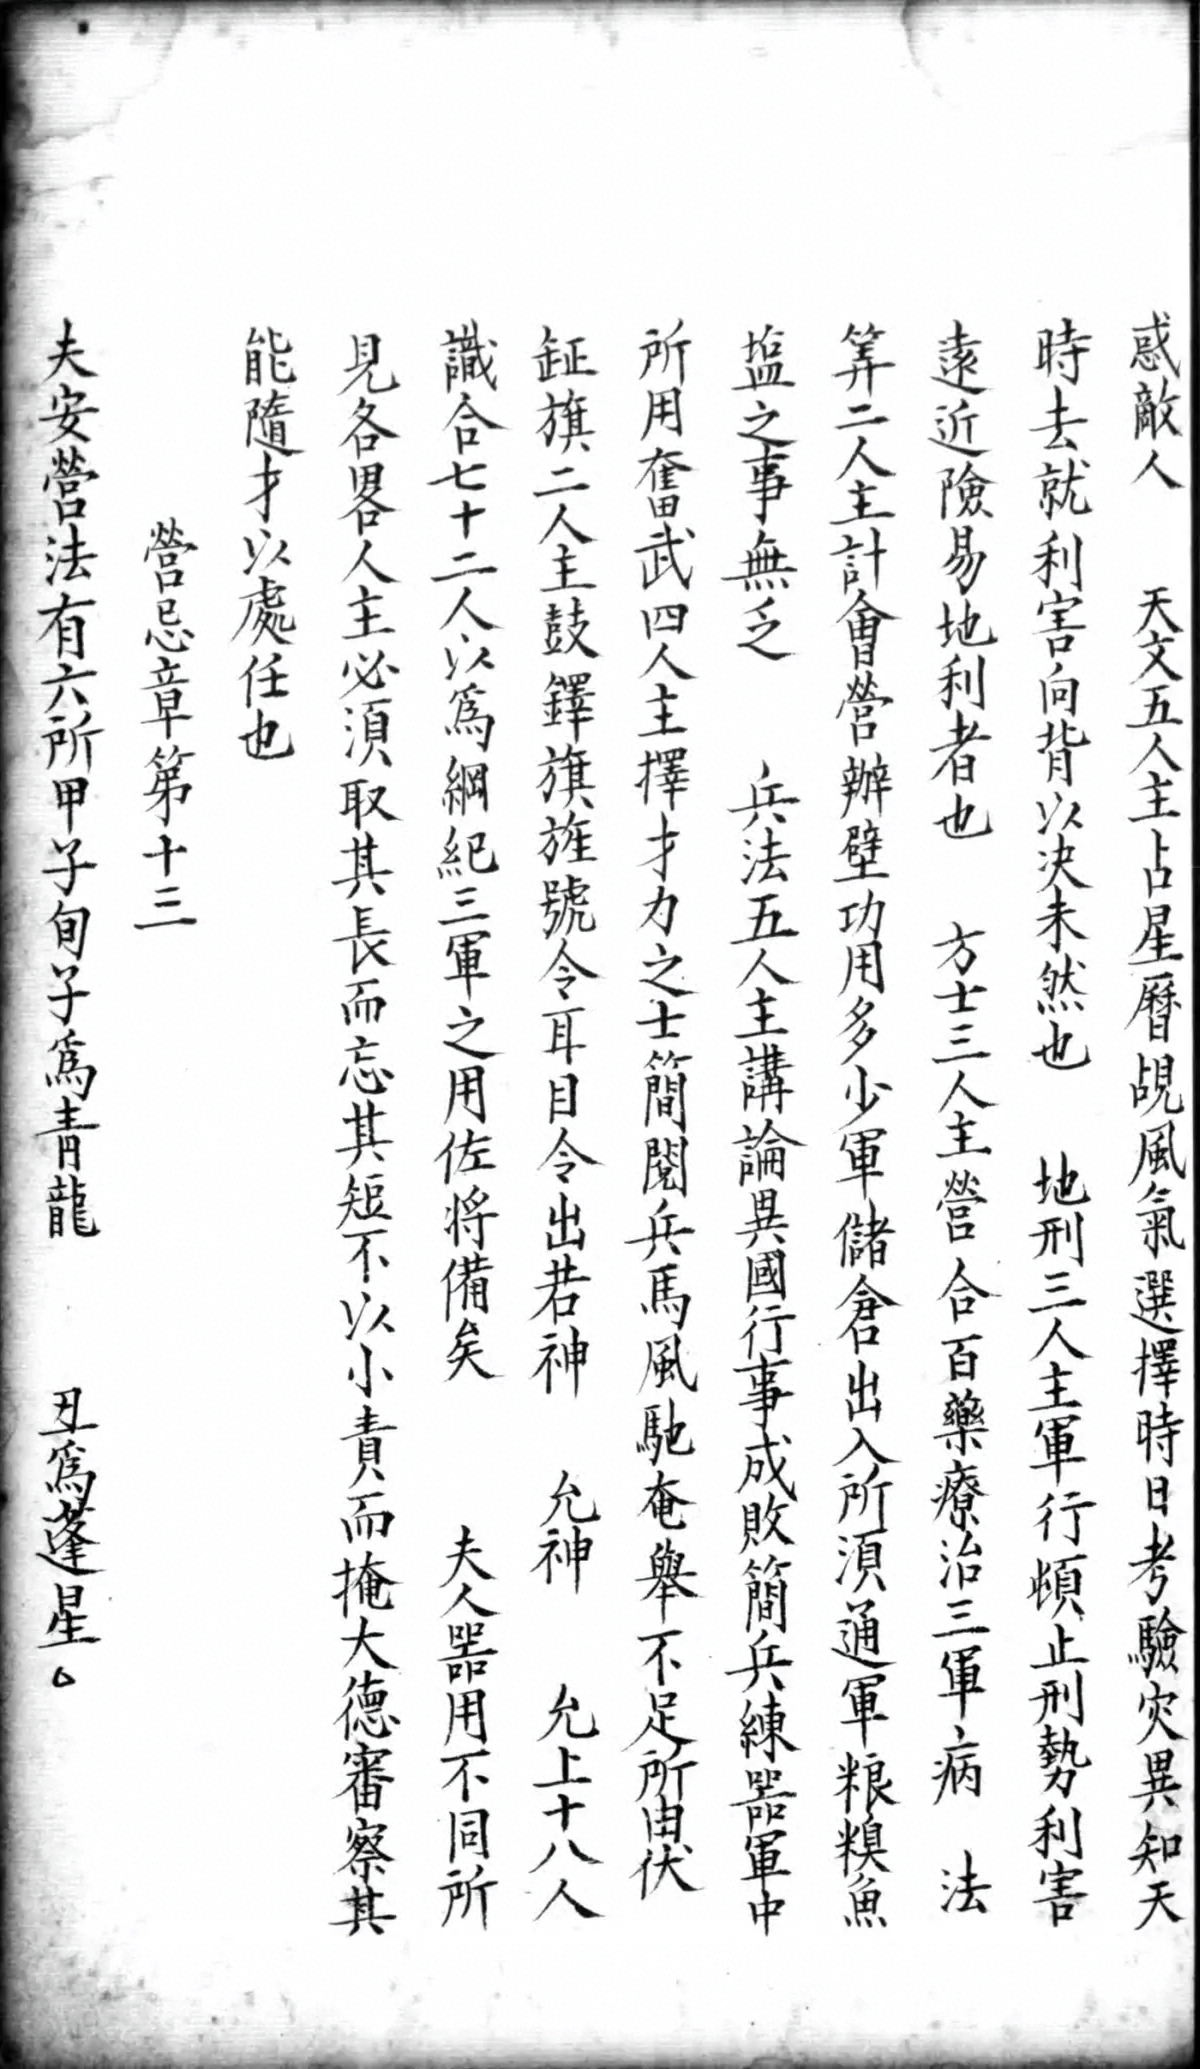 惑敵人　天文五人主占星曆覘風氣選擇時日考驗灾異知天
時去就利害向背以决未然也　地刑三人主軍行頓止刑勢利害
遠近險易地利者也　方士三人主營合百藥療治三軍病　法
筭二人主計會營辦壁功用多少軍儲倉出入所湏通軍粮糗魚
塩之事無乏　兵法五人主講論異國行事成敗簡兵練器軍中
所用奮武四人主擇才力之士簡閱兵馬風馳奄舉不足所由伏
鉦旗二人主鼓鐸旗旌號令耳目令出若神　允神　允上十八人
識合七十二人以爲綱紀三軍之用佐将備矣　夫人器用不同所
見各畧人主必湏取其長而忘其短不以小責而掩大德審察其
能隨才以處任也
營忌章第十三
夫安營法有六所甲子旬子爲青龍　丑爲蓬星